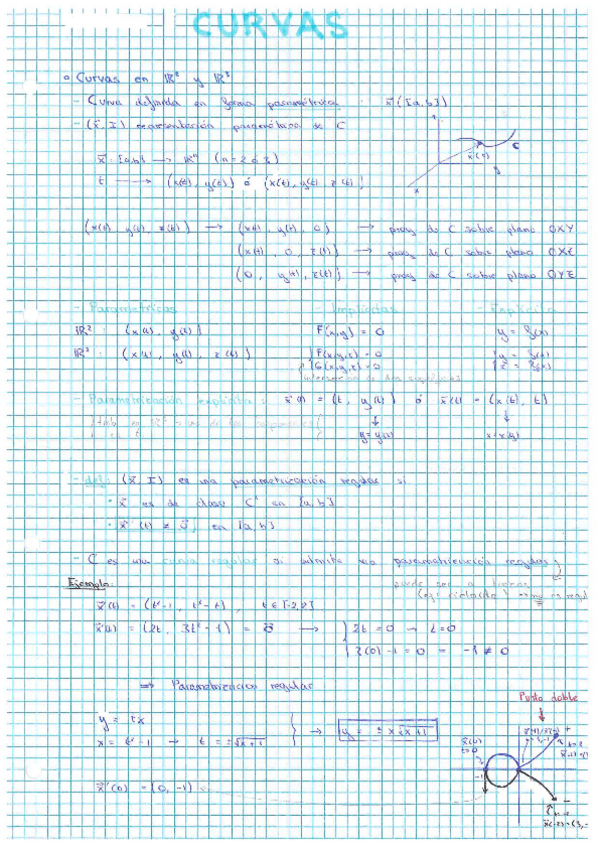 CURVAS
Curvas en ℝ² y ℝ³
- Curva definida en forma paramétrica: x⃗([a,b])
- (x⃗, I) representación paramétrica de C
x⃗: [a,b] → ℝⁿ (n = 2 ó 3)
t → (x(t), y(t)) ó (x(t), y(t), z(t))
C
x⃗(t)
y
x
(x(t), y(t), z(t)) → (x(t), y(t), 0) → proy de C sobre plano OXY
(x(t), 0, z(t)) → proy de C sobre plano OXZ
(0, y(t), z(t)) → proy de C sobre plano OYZ
- Paramétricas Implícitas - Explícita
ℝ²: (x(t), y(t)) F(x,y) = 0 y = f(x)
ℝ³: (x(t), y(t), z(t)) F(x,y,z) = 0 y = f(x)
G(x,y,z) = 0 z = g(x)
intersección de dos superficies
- Parametrización explícita: x⃗(t) = (t, y(t)) ó x⃗(t) = (x(t), t)
y = y(x) x = x(y)
- def: (x⃗, I) es una parametrización regular si
· x⃗ es de clase C¹ en [a,b]
· x⃗'(t) ≠ 0⃗, en [a,b]
- C es una curva regular si admite una parametrización regular
puede ser a trozos
(ej: cicloide) no es regul
Ejemplo:
x⃗(t) = (t²-1, t³-t), t ∈ [-2,2]
x⃗'(t) = (2t, 3t²-1) = 0⃗ → 2t = 0 → t = 0
3(0)-1 = 0 = -1 ≠ 0
⇒ Parametrización regular
Punto doble
y = tx
x = t²-1 → t = ±√x+1 → y = ± x√x+1
x⃗(0)
t=0
-1
t=2
x⃗'(0) = (0, -1)
t=-2
x⃗(-2) = (3,-